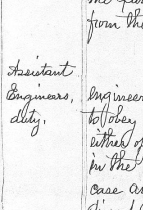 from the
Assistant
Engineers,
duty.
engineer
to obey
either of
in the
case an